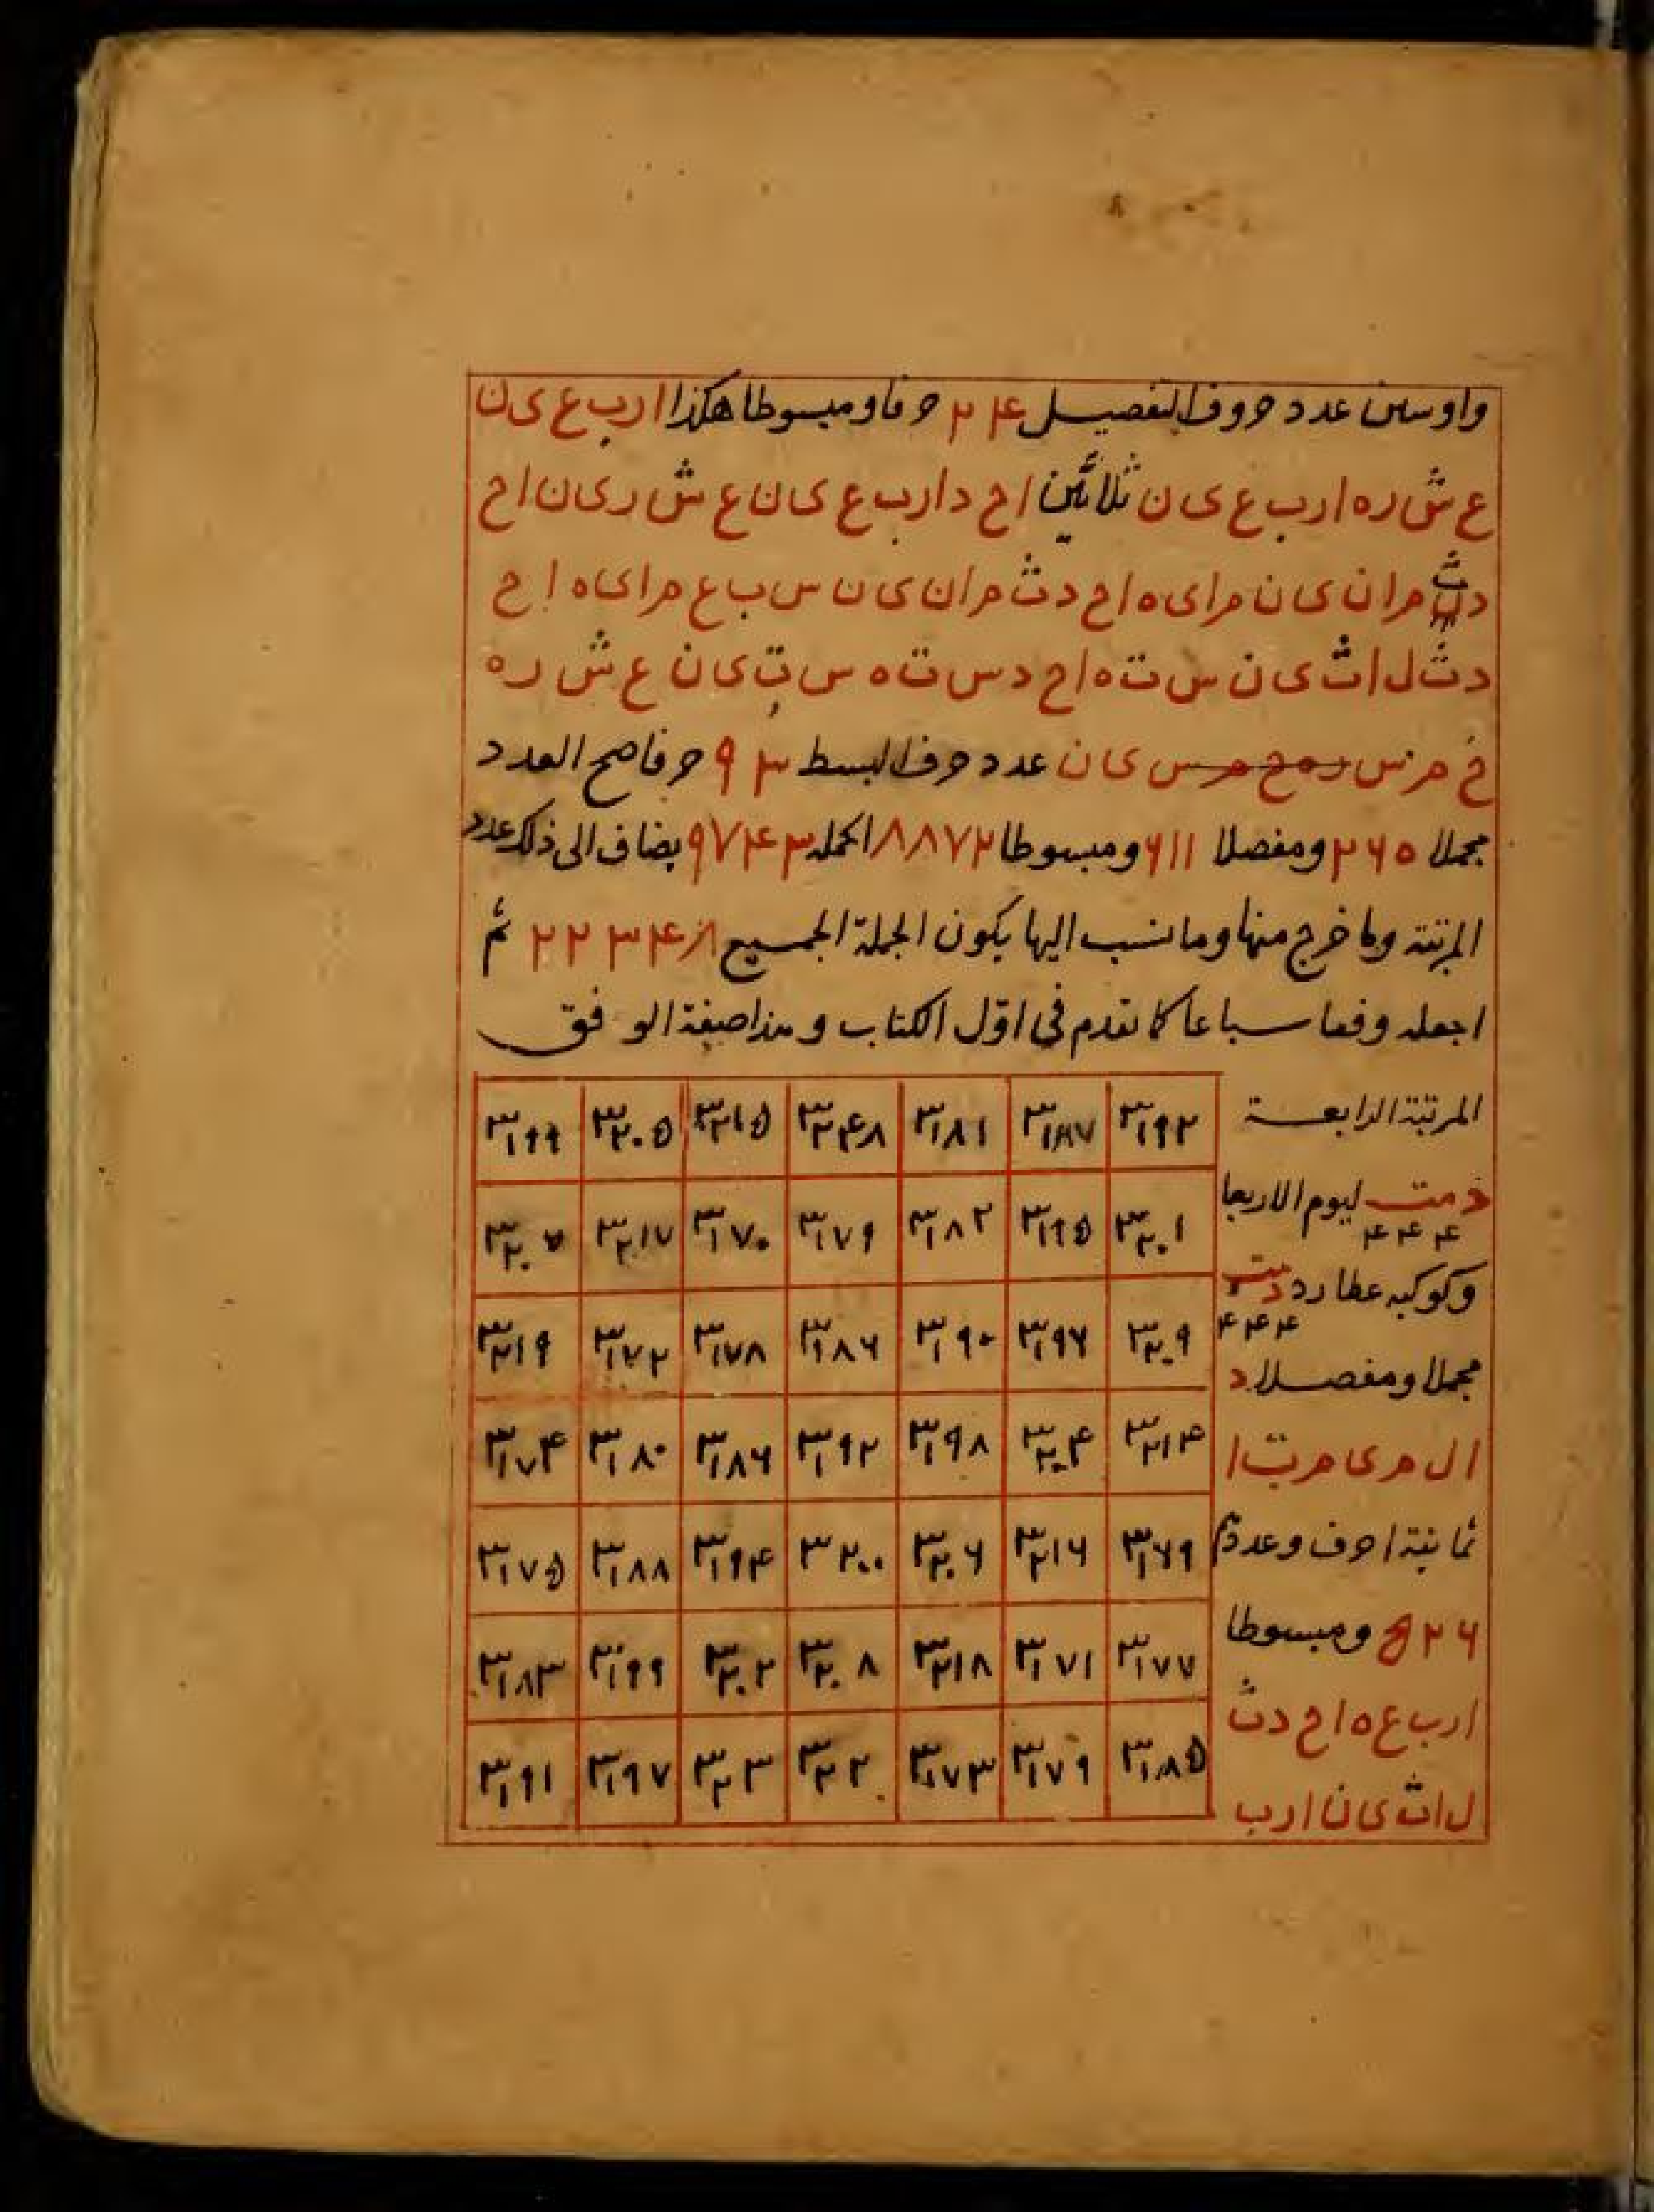 واو سين عدد حروف التفصيل ٢٤ حرفا ومبسوطا هكذا ا ر ب ع ى ن
ع ش ر ه ا ر ب ع ى ن ثلاثين ا ح د ا ر ب ع ى ن ع ش ر ى ن ا ح
د ث م ا ن ى ن م ا ى ه ا ح د ث م ا ن ى ن س ب ع م ا ى ه ا ح
د ث ل ا ث ى ن س ت ه ا ح د س ت ه س ت ى ن ع ش ر ه
خ م س ى ن عدد حرف البسط ٩٣ حرفا صح العدد
مجملا ٢٦٥ ومفصلا ٦١١ ومبسوطا ٨٨٧٢ الجمله ٩٧٤٣ يضاف الى ذلك عدد
المرتبة وما خرج منها وما نسب اليها يكون الجملة الجميع ٢٢٣٤٨ ثم
اجعله وفقا سباعا كما تقدم فى اوّل الكتاب وهذا صفة الوفق
المرتبة الرابعة
دمت ليوم الاربعا
٤ ٤ ٤
وكوكبه عطارد دمت
٤ ٤ ٤
مجملا ومفصلا د
ا ل م ى م ت ا
ثمانية احرف وعددهم
٥٢٦ ومبسوطا
ا ر ب ع ه ا ح د ث
ل ا ث ى ن ا ر ب
٣١٩٢ ٣١٨٧ ٣١٨١ ٣٢٤٨ ٣٢١٥ ٣٢٠٥ ٣١٩٩
٣٢٠١ ٣١٩٥ ٣١٨٢ ٣١٧٩ ٣١٧٠ ٣٢١٧ ٣٢٠٧
٣٢٠٩ ٣١٩٦ ٣١٩٠ ٣١٨٦ ٣١٧٨ ٣١٧٢ ٣٢١٩
٣٢١٤ ٣٢٠٤ ٣١٩٨ ٣١٩٢ ٣١٨٦ ٣١٨٠ ٣١٧٤
٣١٦٩ ٣٢١٦ ٣٢٠٦ ٣٢٠٠ ٣١٩٤ ٣١٨٨ ٣١٧٥
٣١٧٧ ٣١٧١ ٣٢١٨ ٣٢٠٨ ٣٢٠٢ ٣١٩٩ ٣١٨٣
٣١٨٥ ٣١٧٩ ٣١٧٣ ٣٢٢٠ ٣٢٣ ٣١٩٧ ٣١٩١